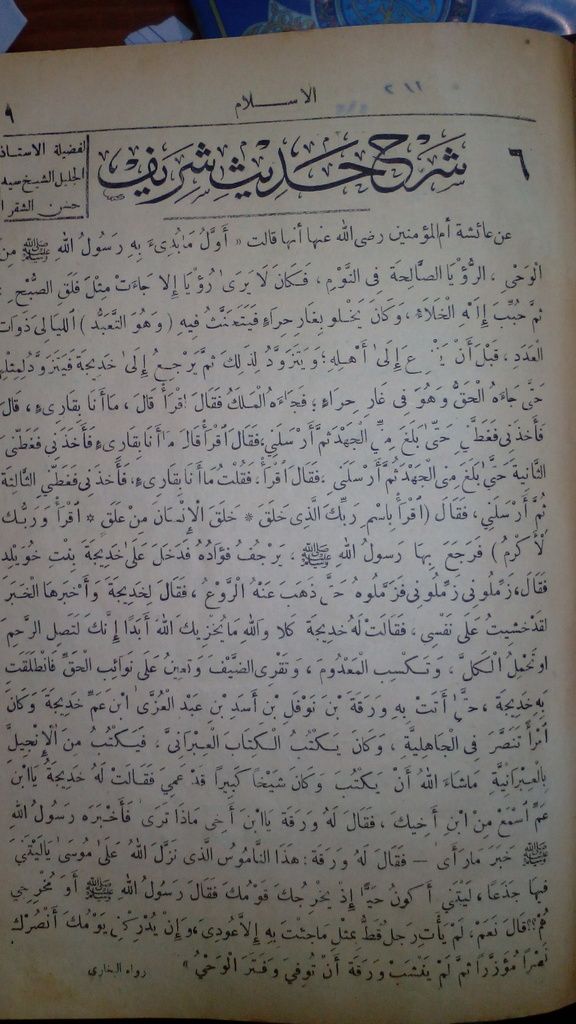 ٢١١
الاســـلام
٩
٦
شرح حديث شريف
لفضيلة الاستاذ
الجليل الشيخ سيد
حسن الشقرا
عن عائشة أم المؤمنين رضى الله عنها أنها قالت « أَوَّلُ مَا بُدِىءَ بِهِ رَسُولُ الله ﷺ مِنَ
الْوَحْىِ ، الرُّؤْيَا الصَّالِحَةَ فى النَّوْمِ ، فَكَانَ لَا يَرَى رُؤْيَا إِلا جَاءَتْ مِثْلَ فَلَقِ الصُّبْحِ ؛
ثمَّ حُبِّبَ إِلَيْهِ الْخَلَاءُ ، وَكَانَ يَخْلُو بِغَارِ حِرَاءٍ فَيَتَحَنَّثُ فِيهِ ( وَهُوَ التَّعَبُّد ) اللَّيَالِىَ ذَوَات
الْعَدَدِ ، قَبْلَ أَنْ يَنْزِعَ إِلَى أَهْلِهِ ؛ وَيَتَزَوَّدُ لِذَلِكَ ثمَّ يَرْجِعُ إِلَى خَدِيجَةَ فَيَتَزَوَّدُ لِمِثْلِهَا
حَتَّى جَاءَهُ الْحَقُّ وَهُوَ فى غَارِ حِرَاءٍ ؛ فَجَاءَهُ الْمَلَكُ فَقَالَ اقْرَأْ قَالَ ، مَا أَنَا بِقَارِىءٍ ، قَالَ
فَأَخَذَنِى فَغَطَّنِى حَتَّى بَلَغَ مِنِّى الْجَهْدَ ثمَّ أَرْسَلَنِى ، فَقَالَ اقْرَأْ قَالَ مَا أَنَا بِقَارِىءٍ فَأَخَذَنِى فَغَطَّنِى
الثَّانِيَةَ حَتَّى بَلَغَ مِنى الْجَهْدَ ثمَّ أَرْسَلَنِى ، فَقَالَ اقْرَأْ ، فَقُلْتُ مَا أَنَا بِقَارِىءٍ ، فَأَخَذَنِى فَغَطَّنِى الثَّالِثَةَ
ثُمَّ أَرْسَلَنِى ، فَقَالَ ( اقْرَأْ بِاسْمِ رَبِّكَ الَّذِى خَلَقَ * خَلَقَ الْإِنْسَانَ مِنْ عَلَقٍ * اقْرَأْ وَرَبُّكَ
الْأَكْرَمُ ) فَرَجَعَ بِهَا رسولُ الله ﷺ ، يَرْجُفُ فُؤَادُهُ فَدَخَلَ عَلَى خَدِيجَةَ بِنْتِ خُوَيْلِد
فَقَالَ ، زَمِّلُونى زَمِّلُونى فَزَمَّلُوهُ حَتَّى ذَهَبَ عَنْهُ الرَّوْعُ ، فَقَالَ لِخَدِيجَةَ وَأَخْبَرَهَا الْخَبَرَ
لَقَدْ خَشِيتُ عَلَى نَفْسِى ، فَقَالَتْ لَهُ خَدِيجَةُ كَلا وَاللهِ مَا يُخْزِيكَ اللهُ أَبَدًا إِنَّكَ لَتَصِل الرَّحِمَ
وَتَحْمِلُ الْكَلَّ ، وَتَكْسِبِ الْمَعْدُومَ ، وَتَقْرِى الضَّيْفَ وَتُعِينُ عَلَى نَوَائِبِ الْحَقِّ فَانْطَلَقَتْ
بِهِ خَدِيجَةُ ، حَتَّى أَتَتْ بِهِ وَرَقَةَ بْنَ نَوْفَلِ بْنِ أَسَدِ بْنِ عَبْدِ الْعُزَّى ابْنَ عَمِّ خَدِيجَةَ وَكَانَ
امْرَأً تَنَصَّرَ فِى الْجَاهِلِيَّةِ ، وَكَانَ يَكْتُبُ الْكِتَابَ الْعِبْرَانِىَّ ، فَيَكْتُبُ مِنَ الْإِنْجِيلِ
بِالْعِبْرَانِيَّةِ مَاشَاءَ اللهُ أَنْ يَكْتُبَ وَكَانَ شَيْخًا كَبِيرًا قَدْ عَمِىَ فَقَالَتْ لَهُ خَدِيجَةُ يَا ابْنَ
عَمِّ اسْمَعْ مِنَ ابْنِ أَخِيكَ ، فَقَالَ لَهُ وَرَقَةُ يَا ابْنَ أَخِى مَاذَا تَرَى فَأَخْبَرَه رَسُولُ اللهِ
ﷺ خَبَرَ مَا رَأَى — فَقَالَ لَهُ وَرَقَةُ : هَذَا النَّامُوسُ الَّذِى نَزَّلَ اللهُ عَلَى مُوسَى يَالَيْتَنِى
فِيهَا جَذَعًا ، لَيْتَنِى أَكُونُ حَيًّا إِذْ يُخْرِجُكَ قَوْمُكَ فَقَالَ رَسُولُ اللهِ ﷺ أَوَ مُخْرِجِىَّ
هُمْ ؟؟ قَالَ نَعَمْ ، لَمْ يَأْتِ رَجُلٌ قَطُّ بِمِثْلِ مَا جِئْتَ بِهِ إِلا عُودِىَ ، وَإِنْ يُدْرِكْنِى يَوْمُكَ أَنْصُرْكَ
نَصْرًا مُؤَزَّرًا ثمَّ لَمْ يَنْشَبْ وَرَقَةُ أَنْ تُوُفِّىَ وَفَتَرَ الْوَحْىُ »
رواه البخارى